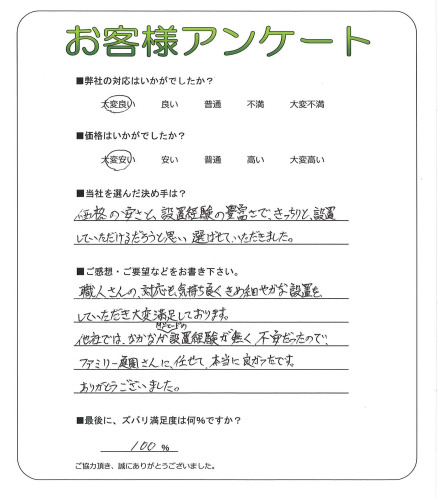 お客様アンケート
■弊社の対応はいかがでしたか？
大変良い 良い 普通 不満 大変不満
■価格はいかがでしたか？
大変安い 安い 普通 高い 大変高い
■当社を選んだ決め手は？
価格の安さと、設置経験の豊富さで、きっちりと、設置
していただけるだろうと思い、選ばせていただきました。
■ご感想・ご要望などをお書き下さい。
職人さんの、対応も気持ち良くきめ細やかな設置を、
していただき大変満足しております。
他社では、なかなか設置経験が無く、不安だったので、
ファミリー庭園さんに、任せて、本当に良かったです。
ありがとうございました。
■最後に、ズバリ満足度は何%ですか？
100 %
ご協力頂き、誠にありがとうございました。